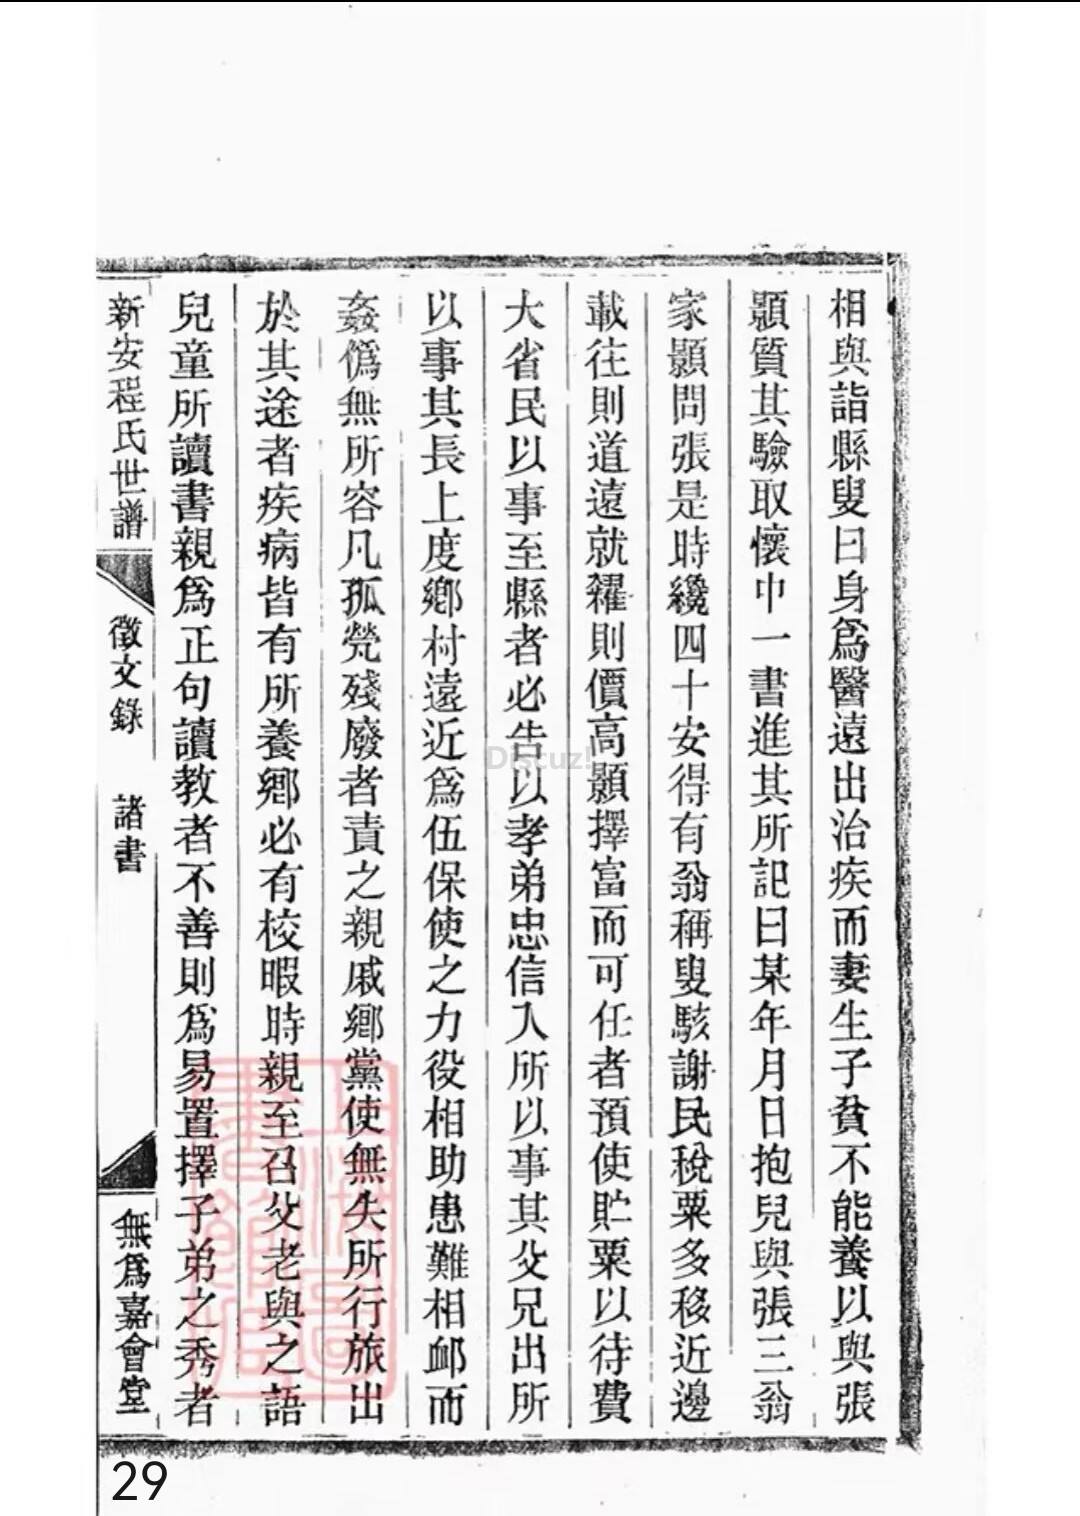 相與詣縣叟曰身爲醫遠出治疾而妻生子貧不能養以與張
顥質其驗取懷中一書進其所記曰某年月日抱兒與張三翁
家顥問張是時纔四十安得有翁稱叟駭謝民稅粟多移近邊
載往則道遠就糴則價高顥擇富而可任者預使貯粟以待費
大省民以事至縣者必告以孝弟忠信入所以事其父兄出所
以事其長上度鄉村遠近爲伍保使之力役相助患難相卹而
姦僞無所容凡孤煢殘廢者責之親戚鄉黨使無失所行旅出
於其途者疾病皆有所養鄉必有校暇時親至召父老與之語
兒童所讀書親爲正句讀教者不善則爲易置擇子弟之秀者
新安程氏世譜 徵文錄 諸書 無爲嘉會堂
Discuz!
上海圖書館藏
29